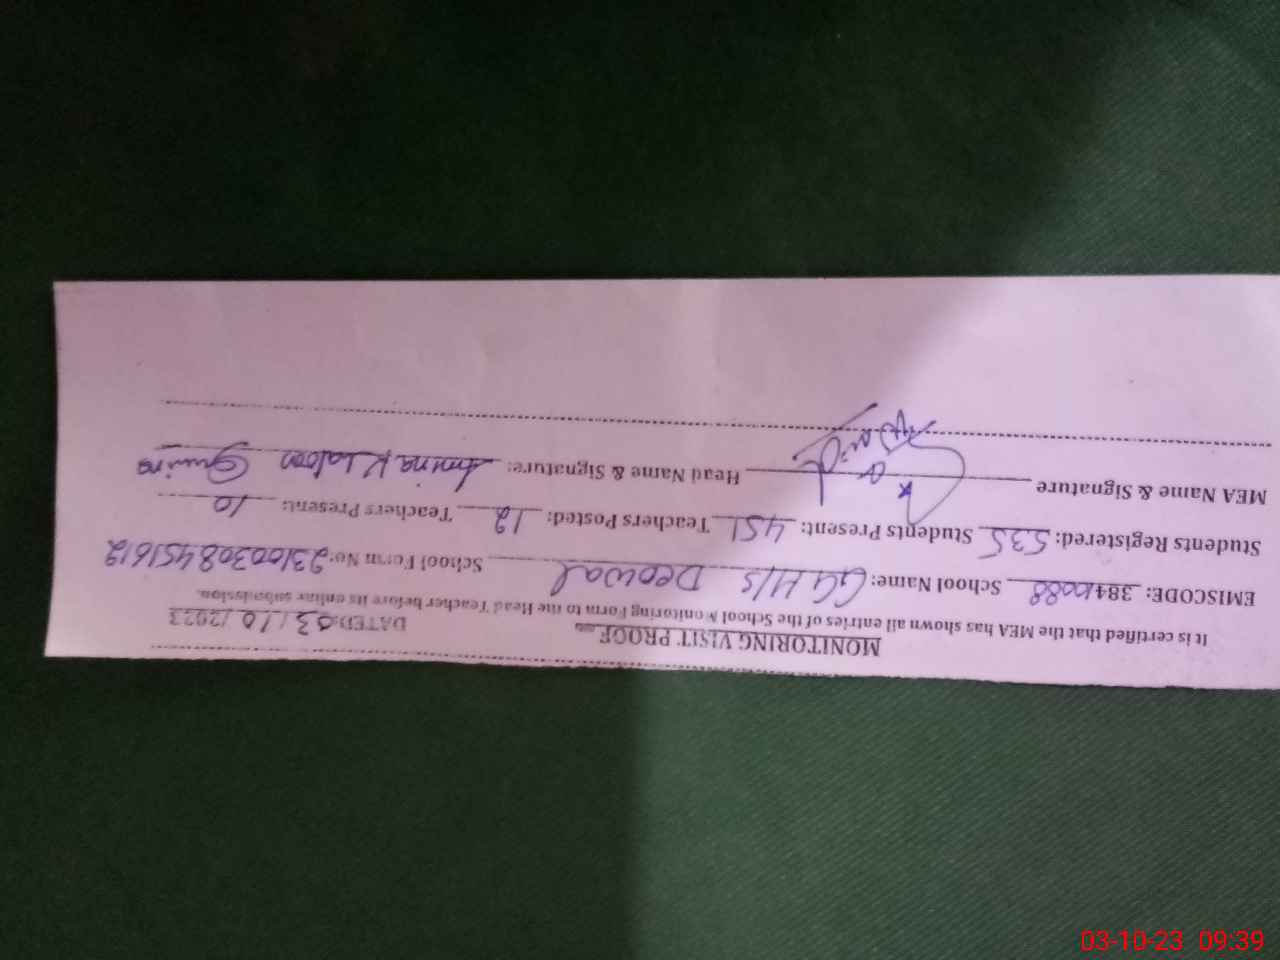 MONITORING VISIT PROOF
DATED: 03/10/2023
It is certified that the MEA has shown all entries of the School Monitoring Form to the Head Teacher before its online submission.
EMISCODE: 384 10088 School Name: GGH/S Deowal School Form No: 23100308451612
Students Registered: 535 Students Present: 451 Teachers Posted: 12 Teachers Present: 10
MEA Name & Signature Head Name & Signature: Amina
03-10-23 09:39